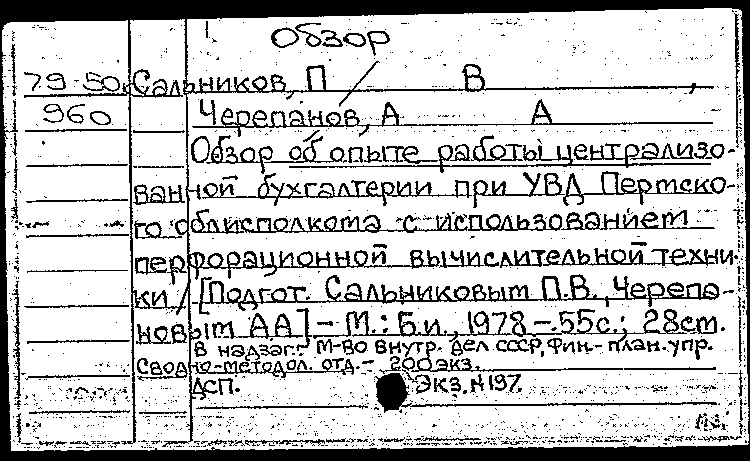 Обзор
79-50. Сальников, П В ,
960 Черепанов, А А
Обзор об опыте работы централизо-
ванной бухгалтерии при УВД Пермско-
го облисполкома с использованием
перфорационной вычислительной техни-
ки / [Подгот. Сальниковым П.В., Черепа-
новым А А] - М.: Б.и., 1978 -. 55с.; 28см.
В надзаг.: М-во внутр. дел СССР, Фин.-план. упр.
Сводно-методол. отд. - 200 экз.
ДСП. Экз. №197.